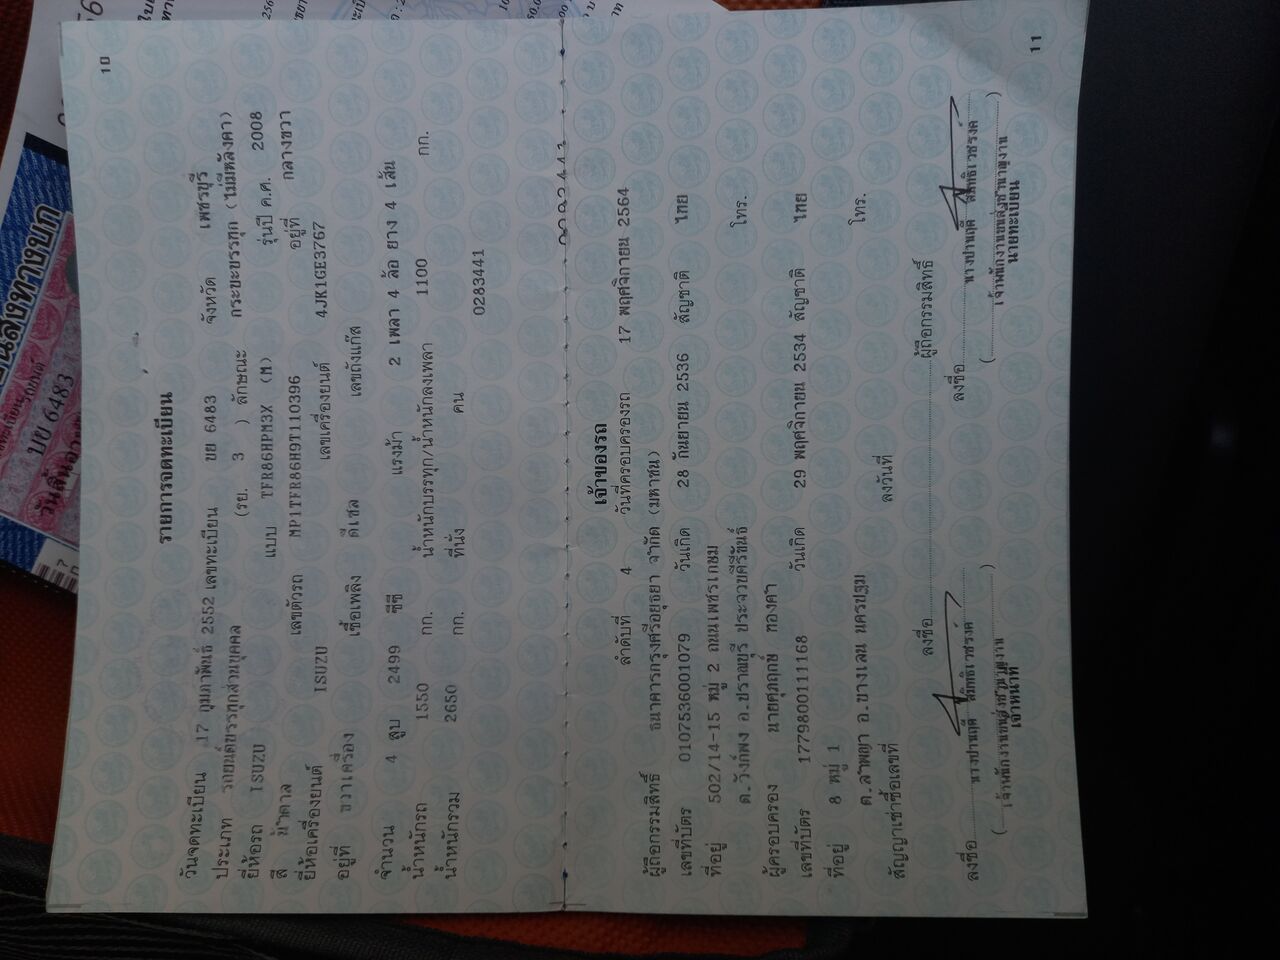 10
รายการจดทะเบียน
วันจดทะเบียน 17 กุมภาพันธ์ 2552 เลขทะเบียน ขย 6483 จังหวัด เพชรบุรี
ประเภท รถยนต์บรรทุกส่วนบุคคล (รย. 3 ) ลักษณะ กระบะบรรทุก (ไม่มีหลังคา)
ยี่ห้อรถ ISUZU แบบ TFR86HPM3X (M) รุ่นปี ค.ศ. 2008
สี น้ำตาล เลขตัวรถ MP1TFR86H9T110396 อยู่ที่ กลางขวา
ยี่ห้อเครื่องยนต์ ISUZU เลขเครื่องยนต์ 4JK1GE3767
อยู่ที่ ขวาเครื่อง เชื้อเพลิง ดีเซล เลขถังแก๊ส
จำนวน 4 สูบ 2499 ซีซี แรงม้า 2 เพลา 4 ล้อ ยาง 4 เส้น
น้ำหนักรถ 1550 กก. น้ำหนักบรรทุก/น้ำหนักลงเพลา 1100 กก.
น้ำหนักรวม 2650 กก. ที่นั่ง คน
0283441
เจ้าของรถ
ลำดับที่ 4 วันที่ครอบครองรถ 17 พฤศจิกายน 2564
ผู้ถือกรรมสิทธิ์ ธนาคารกรุงศรีอยุธยา จำกัด (มหาชน)
เลขที่บัตร 0107536001079 วันเกิด 28 กันยายน 2536 สัญชาติ ไทย
ที่อยู่ 502/14-15 หมู่ 2 ถนนเพชรเกษม
ต.วังก์พง อ.ปราณบุรี ประจวบคีรีขันธ์ โทร.
ผู้ครอบครอง นายศุภฤกษ์ ทองคำ
เลขที่บัตร 1779800111168 วันเกิด 29 พฤศจิกายน 2534 สัญชาติ ไทย
ที่อยู่ 8 หมู่ 1
ต.ลำพญา อ.บางเลน นครปฐม โทร.
สัญญาเช่าซื้อเลขที่ ลงวันที่
ลงชื่อ ผู้ถือกรรมสิทธิ์
ลงชื่อ นางปานฤดี สิทธิเวชรงค์ ลงชื่อ นางปานฤดี สิทธิเวชรงค์
(เจ้าพนักงานขนส่งชำนาญงาน) (เจ้าพนักงานขนส่งชำนาญงาน)
เจ้าหน้าที่ นายทะเบียน
11
บย 6483
วันสิ้นอา